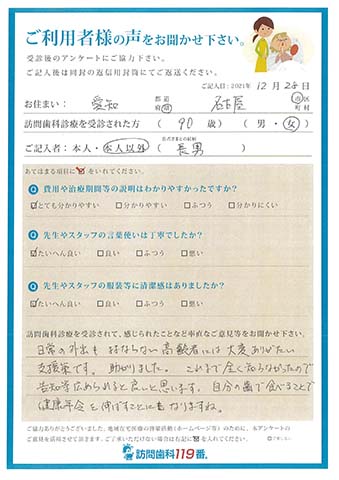 ご利用者様の声をお聞かせ下さい。
受診後のアンケートにご協力下さい。
ご記入後は同封の返信用封筒にてご返送ください。
ご記入日:2021年 12月 28日
お住まい: 愛知 都道府県 名古屋 市区町村
訪問歯科診療を受診された方 ( 90 歳) (男・女)
ご記入者:本人・本人以外 ( 長男 )
あてはまる項目に☑を入れてください。
Q 費用や治療期間等の説明はわかりやすかったですか?
☑とても分かりやすい □分かりやすい □ふつう □分かりにくい
Q 先生やスタッフの言葉使いは丁寧でしたか?
☑たいへん良い □良い □ふつう □悪い
Q 先生やスタッフの服装等に清潔感はありましたか?
☑たいへん良い □良い □ふつう □悪い
訪問歯科診療を受診されて、感じられたことなど率直なご意見等をお聞かせ下さい。
日常の外出も ままならない高齢者には大変ありがたい
支援策です。助かりました。これまで全く知らなかったので
告知等広められると良いと思います。自分の歯で食べることで
健康年令を伸ばすことにもなりますね。
ご協力ありがとうございました。地域在宅医療の啓発活動(ホームページ等)のために、本アンケートの
ご意見を活用させて頂きます。ご了承いただけない場合は右記に☑を入れてください。
訪問歯科119番®